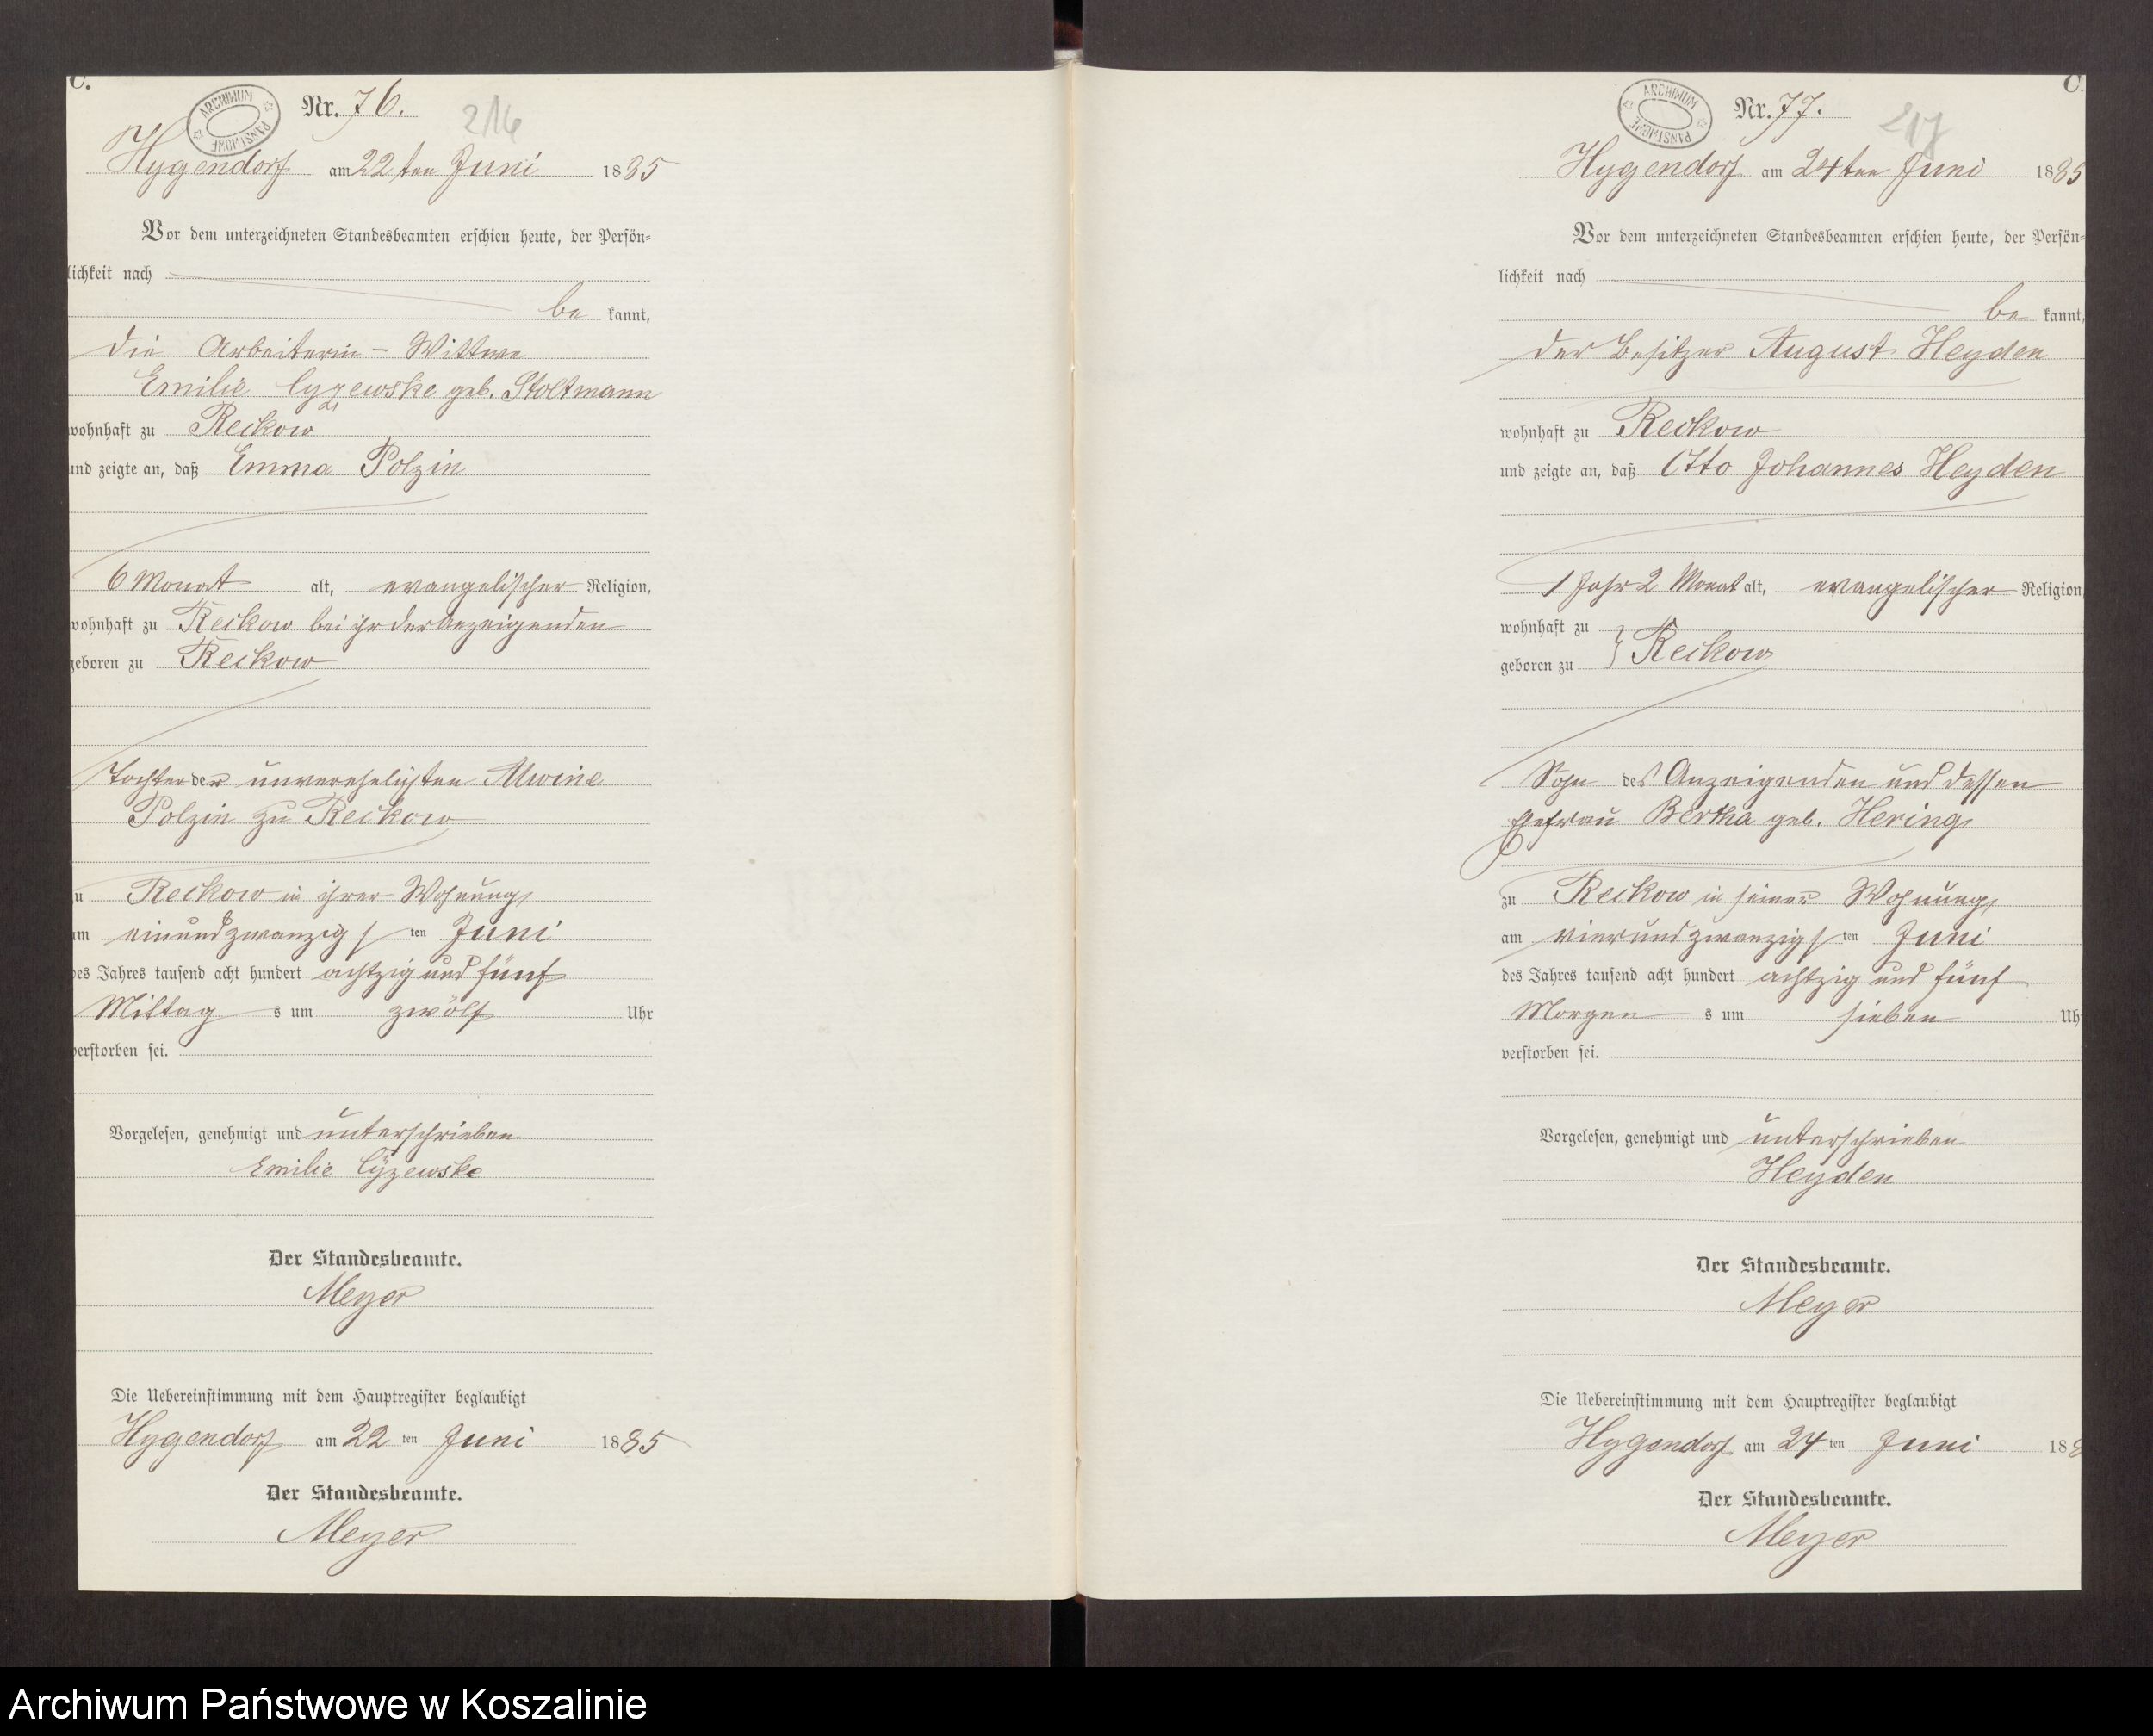 C.
ARCHIWUM PAŃSTWOWE
Nr. 76.
216
Hygendorf am 22ten Juni 1885
Vor dem unterzeichneten Standesbeamten erschien heute, der Persön-
lichkeit nach
be kannt,
die Arbeiterin-Wittwe
Emilie Cyzewske geb. Stoltmann
wohnhaft zu Reckow
und zeigte an, daß Emma Polzin
6 Monat alt, evangelischer Religion,
wohnhaft zu Reckow bei ihr der Anzeigenden
geboren zu Reckow
Tochter der unverehelichten Alwine
Polzin zu Reckow
zu Reckow in ihrer Wohnung
am einundzwanzigs ten Juni
des Jahres tausend acht hundert achtzig und fünf
Mittag s um zwölf Uhr
verstorben sei.
Vorgelesen, genehmigt und unterschrieben
Emilie Cÿzewske
Der Standesbeamte.
Meyer
Die Uebereinstimmung mit dem Hauptregister beglaubigt
Hygendorf am 22 ten Juni 1885
Der Standesbeamte.
Meyer
C.
ARCHIWUM PAŃSTWOWE
Nr. 77.
217
Hygendorf am 24ten Juni 1885
Vor dem unterzeichneten Standesbeamten erschien heute, der Persön-
lichkeit nach
be kannt,
der Besitzer August Heyden
wohnhaft zu Reckow
und zeigte an, daß Otto Johannes Heyden
1 Jahr 2 Monat alt, evangelischer Religion,
wohnhaft zu
geboren zu } Reckow
Sohn des Anzeigenden und dessen
Ehefrau Bertha geb. Hering
zu Reckow in seiner Wohnung
am vierundzwanzigs ten Juni
des Jahres tausend acht hundert achtzig und fünf
Morgen s um sieben Uh
verstorben sei.
Vorgelesen, genehmigt und unterschrieben
Heyden
Der Standesbeamte.
Meyer
Die Uebereinstimmung mit dem Hauptregister beglaubigt
Hygendorf am 24 ten Juni 188
Der Standesbeamte.
Meyer
Archiwum Państwowe w Koszalinie